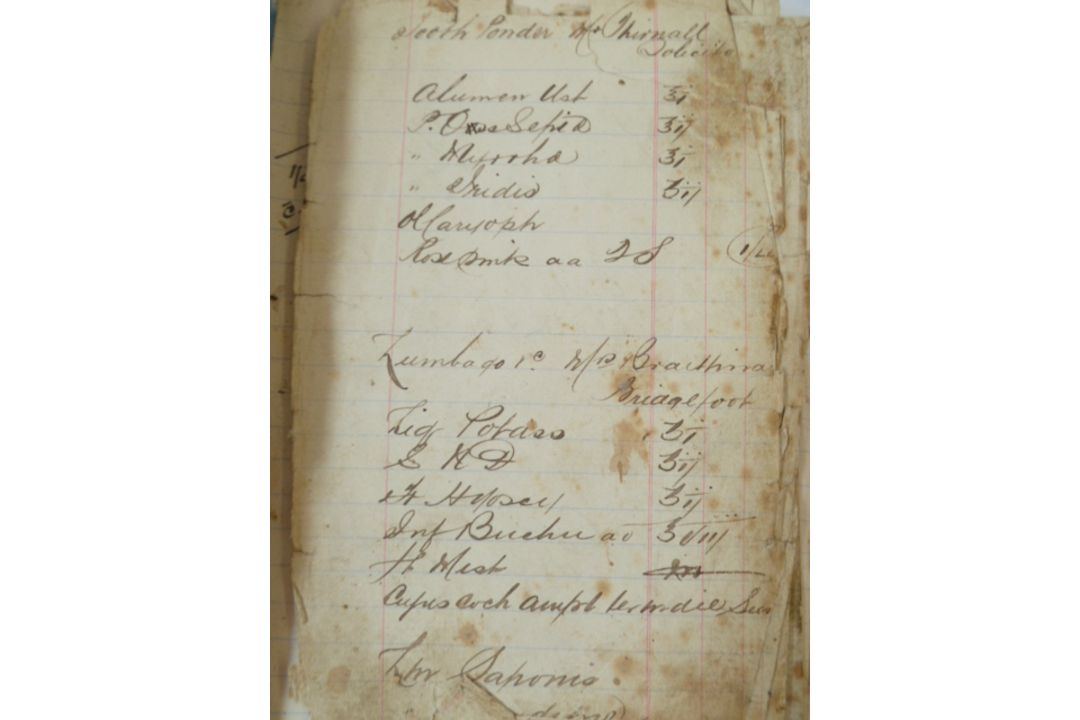 Tooth Powder Mr Thirnall
Solicito
Alumen Ust ʒi
P. Oss Sepia ʒij
" Myrrha ʒi
" Iridis ʒiij
Ol Caryoph
Rose Pink aa QS
Lumbago rc Mrs Braithwa
Bridgefoot
Liq Potass ʒi
S N D ʒiij
Tr Hyoscy ʒij
Inf Buchu ad ʒviij
ft Mist
Cujus coch ampl ter in die Sum
Lin Saponis